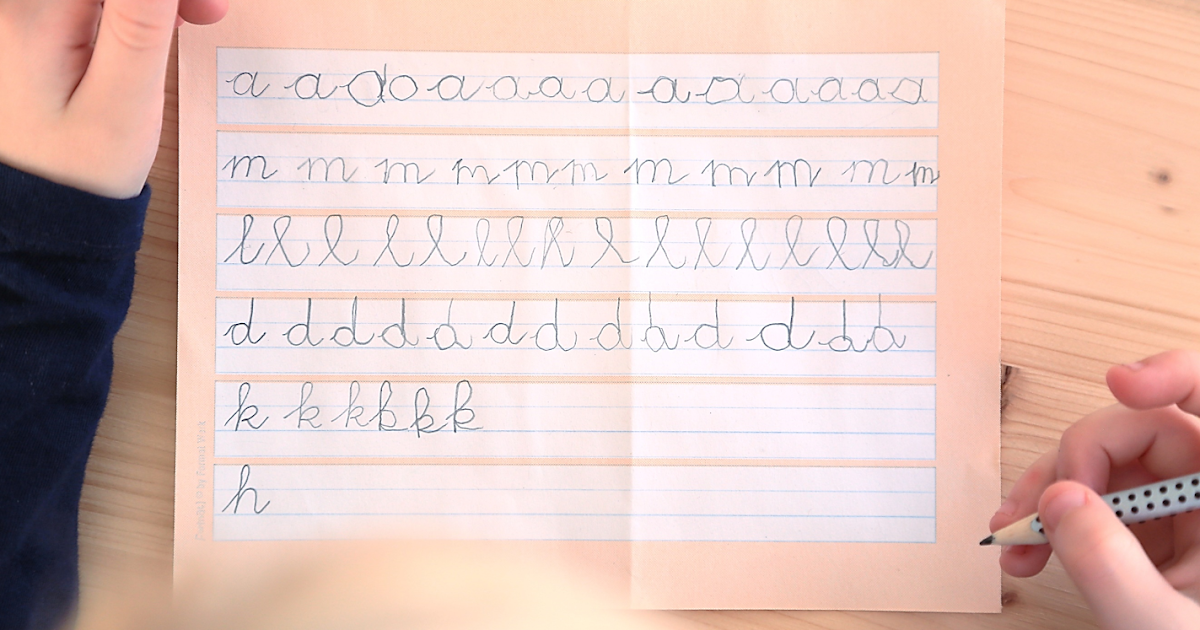 a a a o a a a a a a a a a a
m m m m m m m m m m m
l l l l l l l h l l l l l l l l
d d d d d d d d d d d d d
k k k k k k
h